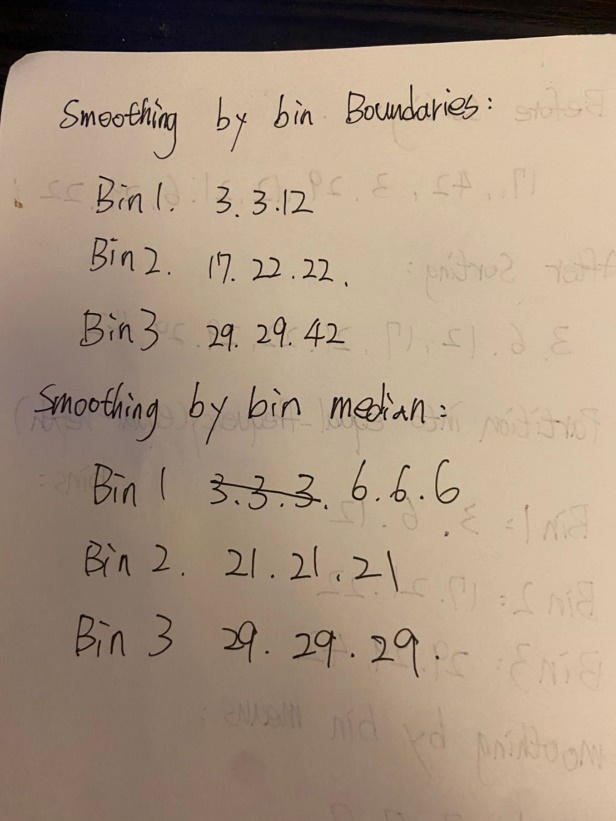 Smoothing by bin Boundaries:
Bin 1. 3.3.12
Bin 2. 17.22.22.
Bin 3 29.29.42
Smoothing by bin median:
Bin 1 3.3.3. 6.6.6
Bin 2. 21.21.21
Bin 3 29.29.29.